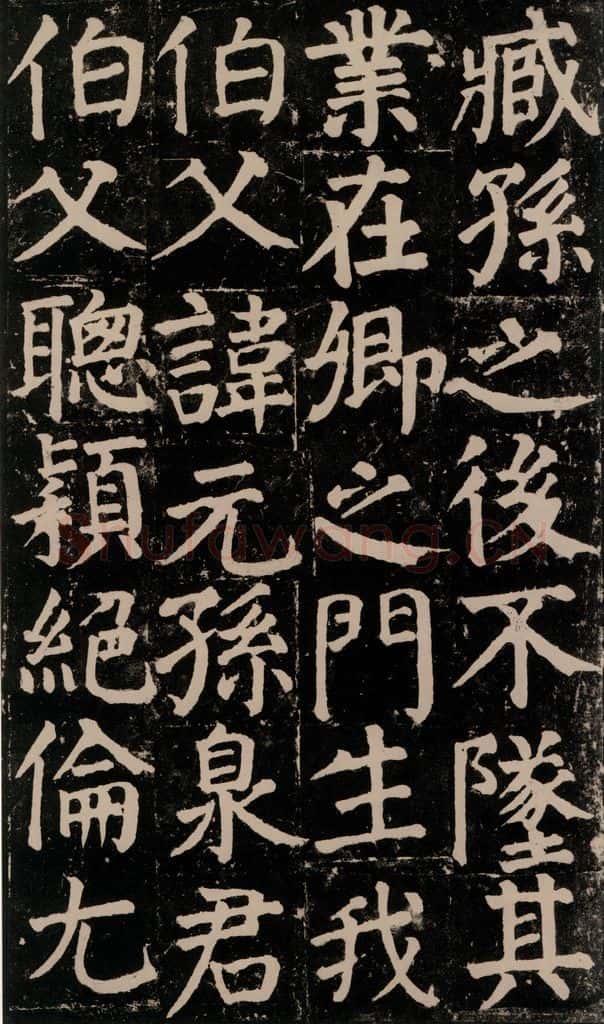 臧孫之後不墜其
業在卿之門生我
伯父諱元孫泉君
伯父聰穎絕倫尤
Shufawang.CN